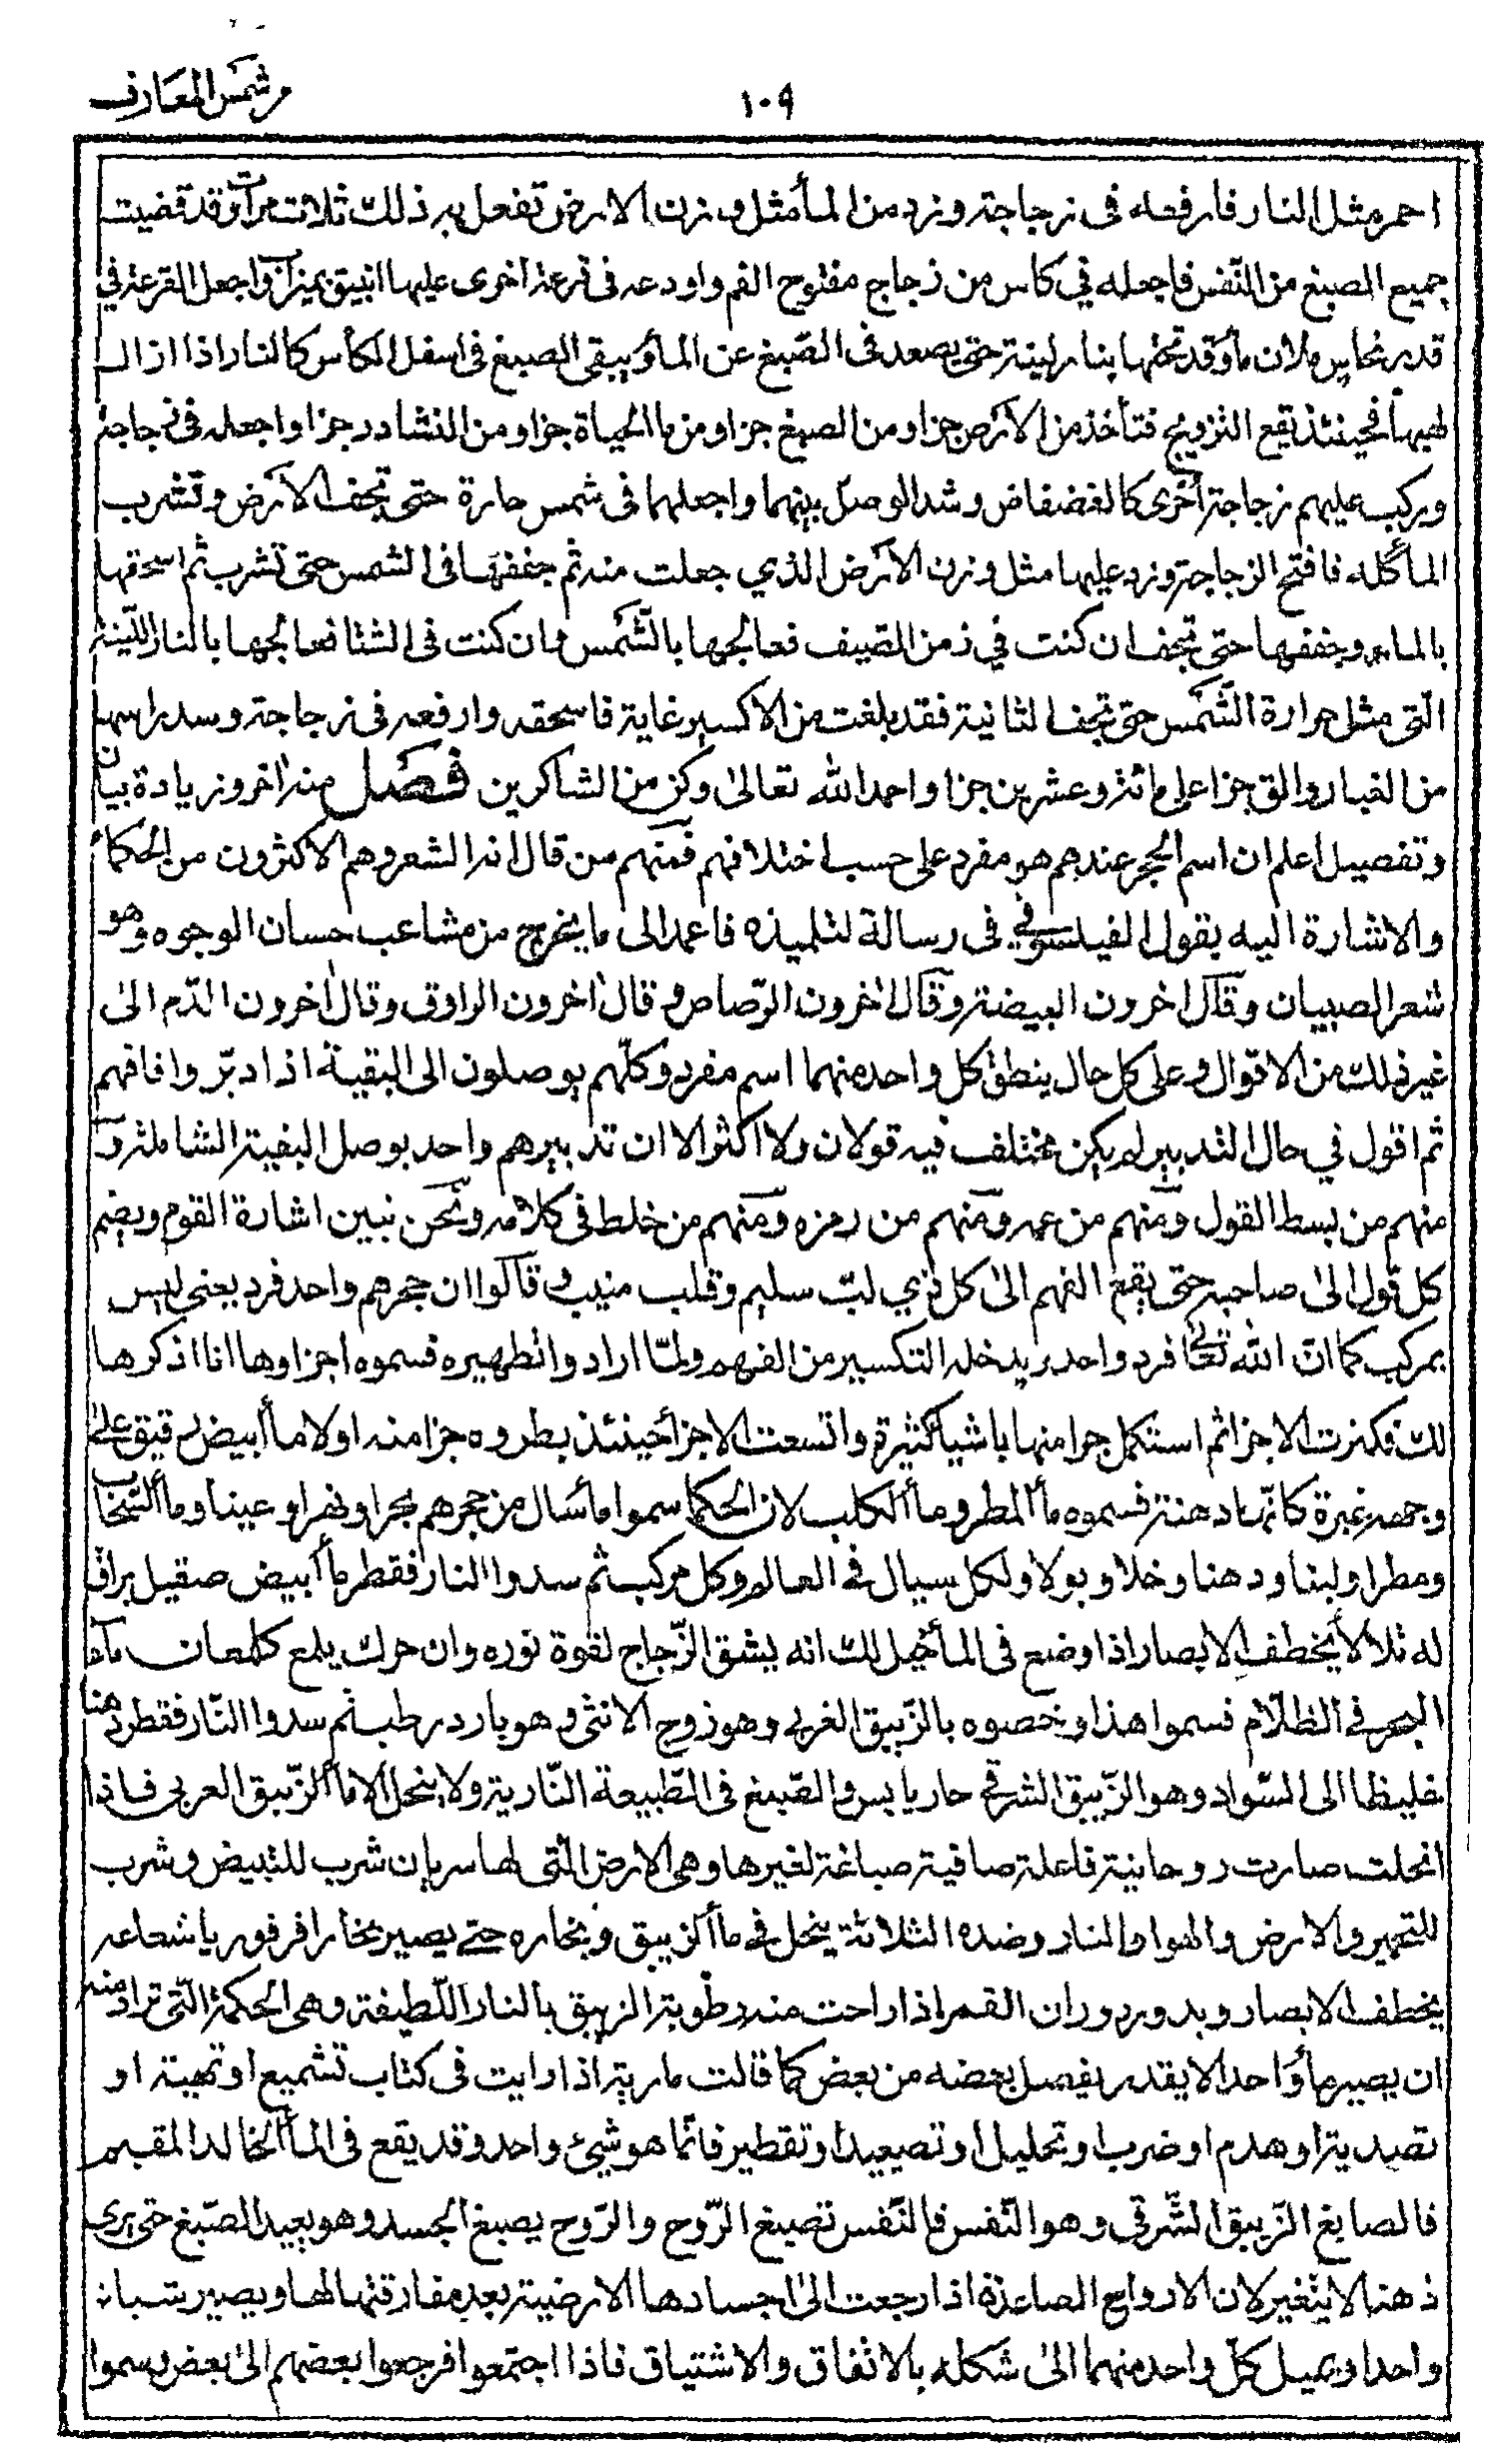 شمس المعارف
١٠٩
احمر مثل النار فارفعه فى زجاجة وزد من المأ مثل وزن الارض تفعل به ذلك ثلاث مرات وقد قضيت
جميع الصبغ من النّفس فاجعله في كاس من زجاج مفتوح الفم واودعه فى قرعة اخرى عليها انبيق بميزاب واجعل القرعة في
قدر نحاس ملان مأ وقد تحتها بنار لينة حتى يصعد فى الصّبغ عن المأ ويبقى الصبغ فى اسفل الكأس كالنار اذا ازال
لهيبها فحينئذ يقع التزويج فتأخذ من الأرض جزا ومن الصبغ جزا ومن ما الحياة جزا ومن النشادر جزا واجعله فى زجاجة
وركب عليهم زجاجة اخرى كالغضفاض وشد الوصل بينهما واجعلهما فى شمس حارة حتى تجف الأرض وتشرب
المأ كله فافتح الزجاجة وزد عليها مثل وزن الأرض الذي جعلت منه ثم جففها فى الشمس حتى تشرب ثم اسحقها
بالماء وجففها حتى تجف ان كنت في زمن الصّيف فعالجها بالشّمس وان كنت فى الشتا فعالجها بالنار اللّينة
التى مثل حرارة الشّمس حتى تجف الثانية فقد بلغت من الاكسير غاية فاسحقه وارفعه فى زجاجة وسد راسها
من الغبار والق جزا على مائة وعشرين جزا واحمد الله تعالى وكن من الشاكرين فصل منه اخر وزيادة بيان
وتفصيل اعلم ان اسم الحجر عندهم هو مفرد على حسب اختلافهم فمنهم من قال انه الشعر وهم الاكثرون من الحكمأ
والاشارة اليه يقول الفيلسوف فى رسالة لتلميذه فاعمد الى ما يخرج من مشاعب حسان الوجوه وهو
شعر الصبيان وقال اخرون البيضة وقال اخرون الرّصاص وقال اخرون الراوق وقال اخرون الدّم الى
غير ذلك من الاقوال وعلى كل حال ينطق كل واحد منهما اسم مفرد وكلّهم يوصلون الى البقية اذا دبّروا فافهم
ثم اقول في حال التدبير لم يكن مختلف فيه قولان ولا اكثر الا ان تدبيرهم واحد يوصل البغية الشاملة و
منهم من بسط القول ومنهم من عمه ومنهم من رمزه ومنهم من خلط فى كلامه ونحن نبين اشارة القوم ويضم
كل قول الى صاحبه حتى يقع الفهم الى كل ذي لبّ سليم وقلب منيب وقالوا ان حجرهم واحد فرد يعنى ليس
بمركب كما انّ الله تعالى فرد واحد يدخله التكسير من الفهم ولمّا ارادوا تطهيره فسموه اجزاوها انا اذكرها
لك فكثرت الاجزا ثم استكمل جوا منها باشيا كثيرة واتسعت الاجزأ حينئذ بطروه جزا منه اولا مأ ابيض رقيق على
وجهه غبرة كانّها دهنة فسموه مأ المطر ومأ الكلب لان الحكما سموا ما سال من حجرهم بحرا ونهرا وعينا ومأ السّحاب
ومطرا ولبنا ودهنا وخلا وبولا ولكل سيال فى العالم وكل مركب ثم سدوا النار فقطر مأ ابيض صقيل براق
له تلألأ يخطف الابصار اذا وضع فى المأ تخيل لك انه يشق الزّجاج لقوة نوره وان حرك يلمع كلمعان مآء
البحر في الظلام فسموا هذا وخصوه بالزّيبق الغربى وهو زوج الانثى وهو بارد رطب ثم سدوا النّار فقطر دهنا
غليظا الى السّواد وهو الزّيبق الشرقى حار يابس والصّبغ فى الطّبيعة النّارية ولا ينحل الا مأ الزّيبق العربى فاذا
انحلت صارت روحانية فاعلة صافية صباغة لغيرها وهى الارض التى لها سربان شرب للتبيض وشرب
للتحمير والارض والهوا والنار وضده الثلاثة ينحل فى مأ الزيبق وبخاره حتى يصير بخارا فرفوريا شعاعه
يخطف الابصار ويدور دوران القمر اذا راحت منه رطوبة الزيبق بالنار اللّطيفة وهى الحكمة التى تراد منه
ان يصير مأ واحدا لا يقدر يفصل بعضه من بعض كما قالت مارية اذا رايت فى كتاب تشميع او تميتة او
تصدية او هدم او ضرب او تحليل او تصعيد او تقطير فانّما هو شيئ واحد وقد يقع فى المأ الخالد المقيم
فالصابغ الزّيبق الشّرقى وهو النّفس فالنّفس تصبغ الرّوح والرّوح يصبغ الجسد وهو بعيد الصّبغ حتى يرى
ذهنا لا يتغير لان الارواح الصاعدة اذا رجعت الى اجسادها الارضية بعد مفارقتها لها ويصير شبا
واحدا ويميل كلّ واحد منهما الى شكله بالاتفاق والاشتياق فاذا اجتمعوا فرجعوا بعضهم الى بعض وسموا